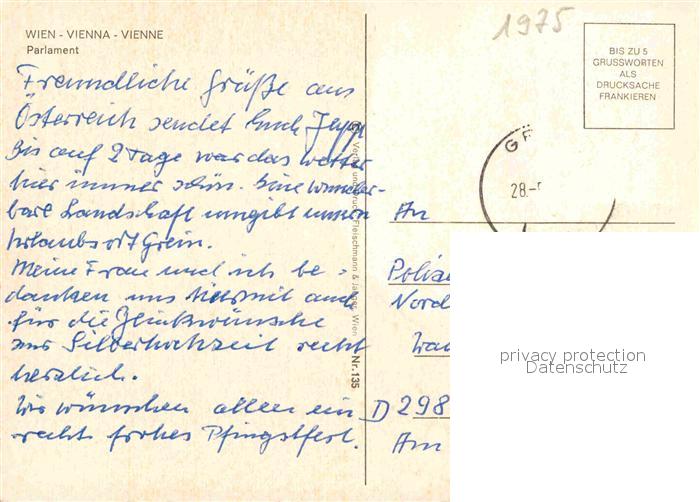 WIEN - VIENNA - VIENNE
Parlament
Freundliche Grüße aus
Österreich sendet Euch
Bis auf 2 Tage war das Wetter
hier immer schön. Eine wunder-
bare Landschaft umgibt unsern
Urlaubsort Grein.
Meine Frau und ich be-
danken uns hiermit auch
für die Glückwünsche
zur Silberhochzeit recht
herzlich.
Wir wünschen allen ein
recht frohes Pfingstfest.
Verlag und Druck Fleischmann & Wien
Nr. 135
1975
BIS ZU 5
GRUSSWORTEN
ALS
DRUCKSACHE
FRANKIEREN
GR
28.-
An
Poliz
Nord
D 298
Am
privacy protection
Datenschutz